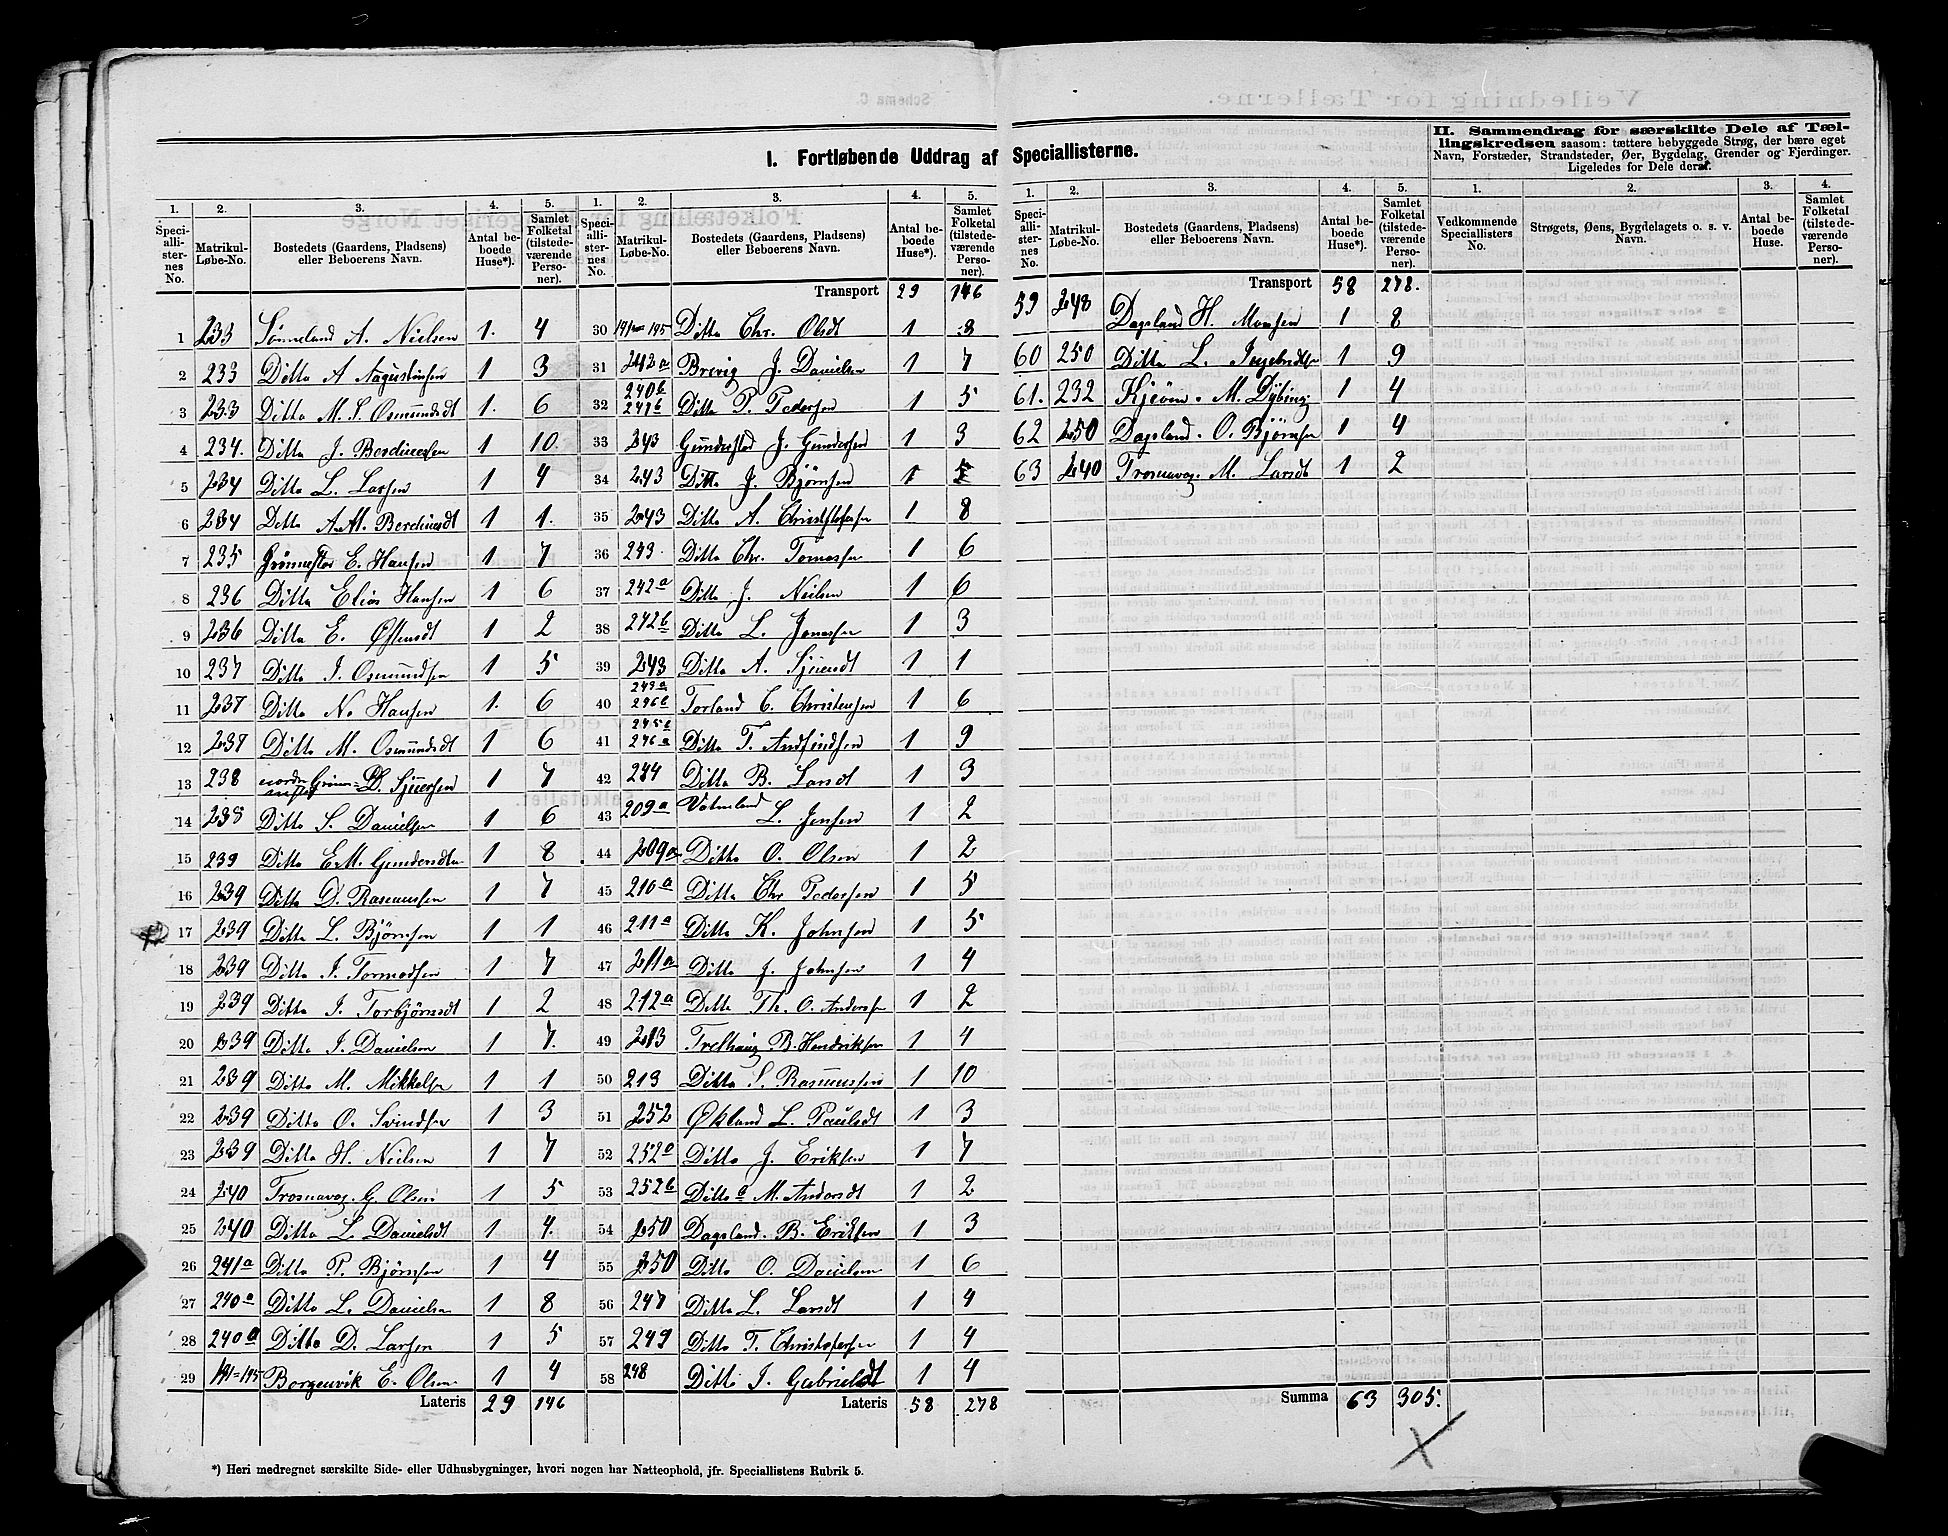 I. Fortløbende Uddrag af Speciallisterne.
II. Sammendrag for særskilte Dele af Tællingskredsen saasom: tættere bebyggede Strøg, der bære eget Navn, Forstæder, Strandsteder, Øer, Bygdelag, Grender og Fjerdinger. Ligeledes for Dele deraf.
1. 2. 3. 4. 5. 1. 2. 3. 4. 5.
Speciallisternes No. Matrikul-Løbe-No. Bostedets (Gaardens, Pladsens) eller Beboerens Navn. Antal beboede Huse*). Samlet Folketal (tilstedeværende Personer).
Speciallisternes No. Matrikul-Løbe-No. Bostedets (Gaardens, Pladsens) eller Beboerens Navn. Antal beboede Huse*). Samlet Folketal (tilstedeværende Personer).
1 233 Sønneland A. Nielsen 1. 4
2 233 Ditto A Augustinsen 1 3
3 233 Ditto M. S. Osmundsdt 1. 6
4 234. Ditto J. Berdinessen 1 10.
5 234 Ditto L. Larsen 1 4
6 234 Ditto A. M. Berdinesdt 1 1.
7 235 Grønnestøl E. Hansen 1 7
8 236 Ditto Elias Hansen 1 6
9 236 Ditto E. Offensdt 1 2
10 237 Ditto J. Osmundsen 1 5
11 237 Ditto N. Hansen 1. 6
12 237 Ditto M. Osmundsdt 1 6
13 238 D. Sjuersen 1 7
14 238 Ditto S. Danielsen 1 6
15 239 Ditto E. M. Gundersdtr 1 8
16 239 Ditto D. Rasmussen 1 7
17 239 Ditto L. Bjørnsen 1 1
18 239 Ditto J. Tormodsen 1 7
19 239 Ditto J. Torbjørnsdt 1 2
20 239 Ditto J. Danielsen 1 7.
21 239 Ditto M. Mikkelsen 1 1
22 239 Ditto O. Svindsen 1 3
23 239 Ditto H. Nielsen 1 7
24 240 Trosnavag. G. Olsen 1 5
25 240 Ditto L. Danielsdt 1 4.
26 241a Ditto P. Bjørnsen 1 4
27 240a Ditto L. Danielsen 1 8
28 240a Ditto D. Larsen 1 5
29 191=195 Borgenvik E. Olsen 1 4
Lateris 29 146
Transport 29 146
30 191=195 Ditto Chr. Olsdt 1 8
31 242a Brevig J. Danielsen 1 7
32 240b 241b Ditto P. Pedersen 1 5
33 243 Gunderstad J. Gundersen 1 3
34 243 Ditto J. Bjørnsen 1
35 243 Ditto A. Christofersen 1. 8
36 243. Ditto Chr. Tomassen 1 6
37 242a Ditto J. Nielsen 1 6
38 242b Ditto L. Jonassen 1 3
39 243 Ditto A. Sjuersdt 1 1
40 Torland C. Christensen 1 6
41 Ditto T. Andfindsen 1 9
42 244 Ditto B. Larsdt 1 3
43 209a L. Jensen 1 2
44 209a Ditto O. Olsen 1 2
45 210a Ditto Chr Pedersen 1 5
46 211a Ditto K. Johnsen 1 5
47 211a Ditto J. Johnsen 1 4
48 212a Ditto Th. O. Andersen 1 2
49 213 Trelhaug B. Hendriksen 1 4
50 213 Ditto S. Rasmussen 1 10
51 252 Økland L. Paulsdt 1 3
52 252a Ditto J. Eriksen 1 7
53 252b Ditto M. Andersdt 1 2
54 250 Dagsland. B. Eriksen 1 3
55 250 Ditto O. Danielsen 1 6
56 247 Ditto L. Larsdt 1 4
57 249 Ditto T. Christofersen 1 4
58 248 Ditto J. Gabrielsdt 1 4
Lateris 58 278
*) Heri medregnet særskilte Side- eller Udhusbygninger, hvori nogen har Natteophold, jfr. Speciallistens Rubrik 5.
1. 2. 3. 4. 5. 1. 2. 3. 4.
Speciallisternes No. Matrikul-Løbe-No. Bostedets (Gaardens, Pladsens) eller Beboerens Navn. Antal beboede Huse*). Samlet Folketal (tilstedeværende Personer).
Vedkommende Speciallisters No. Strøgets, Øens, Bygdelagets o. s. v. Navn. Antal beboede Huse. Samlet Folketal (tilstedeværende Personer).
Transport 58 278.
59 248 Dagsland H. Monsen 1 8
60 250 Ditto L. Ingebretsen 1 9
61. 232 Kjeøen. M. Dybing 1 4
62 250 Dagsland. O. Bjørnsen 1 4
63 240 Trosnavag. M. Larsdt 1 2
Summa 63 305.